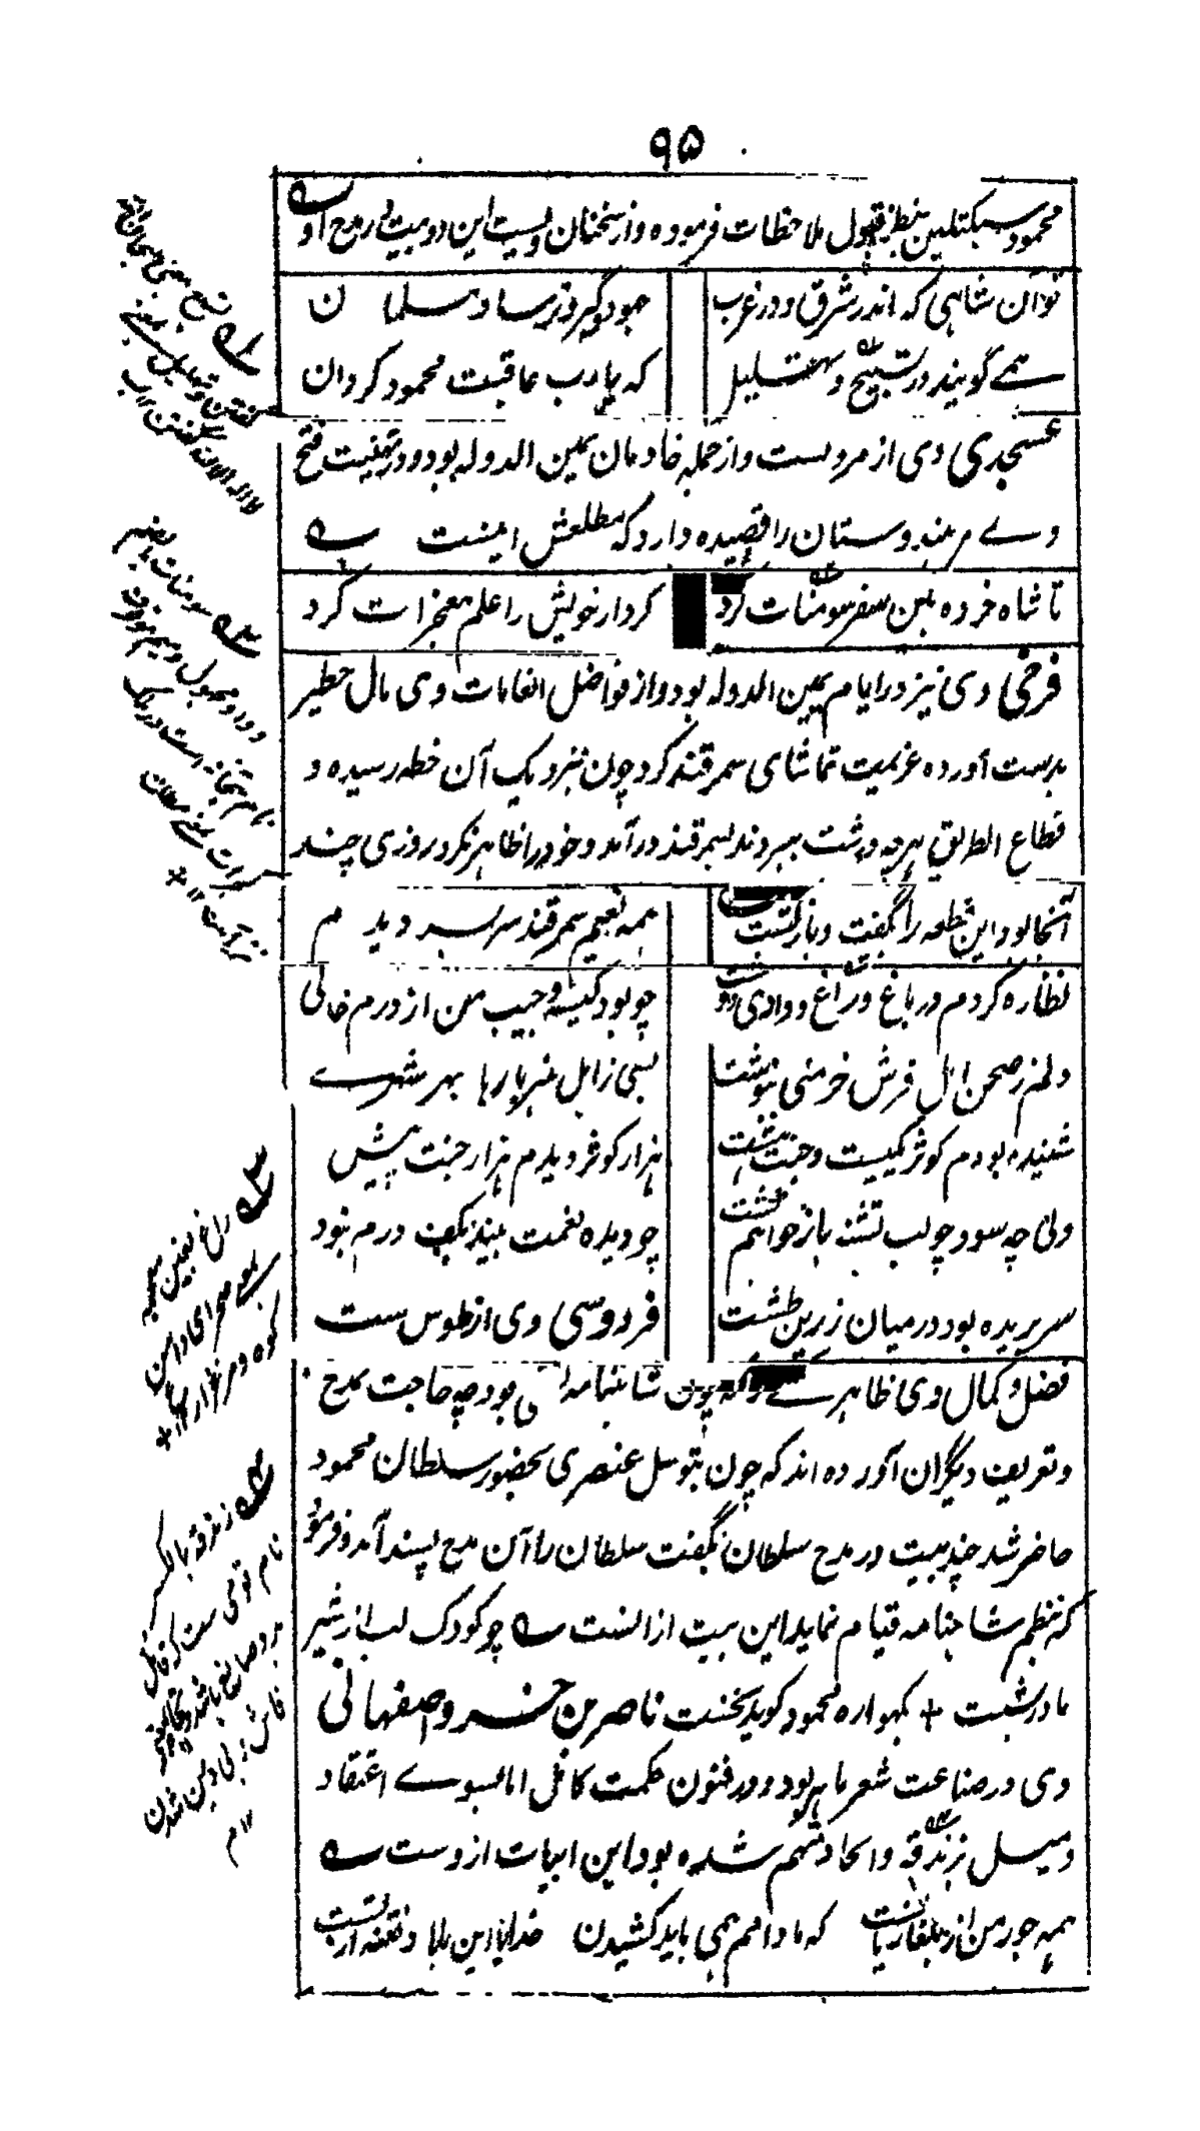 ۹۵
محمود سبکتگین بنظر قبول ملاحظات فرموده و از سخنان ویست این دو بیت در مدح او
توآن شاهی که اندر شرق و در غرب
جهود و گبر و ترسا و مسلمان
همے گویند در تسبیح و تهلیل
که یا رب عاقبت محمود گردان
عسجدی وی از مروست و از جمله خادمان یمین الدوله بود و در تهنیت فتح
وے مر هندوستان را قصیده دارد که مطلعش اینست
تا شاه خرده بین سفر سومنات کرد
کردار خویش را علم معجزات کرد
فرخی وی نیز در ایام یمین الدوله بود و از فواضل انعامات وی مال خطیر
بدست آورده عزیمت تماشای سمرقند کرد چون نزدیک آن خطه رسیده و
قطاع الطریق هرچه داشت ببردند بسمرقند درآمد و خود را ظاهر نکرد روزی چند
آنجا بود این قطعه را گفت و بازگشت
همه نعیم سمرقند سر بسر دیدم
نظاره کردم در باغ و راغ و وادی و دشت
چو بود کیسه و جیب من از درم خالی
دلم ز صحن امل فرش خرمی بنوشت
بسی ز اهل هنر بارها بهر شهرے
شنیده بودم کوثر یکیست و جنت هشت
هزار کوثر دیدم هزار جنت پیش
ولی چه سود چو لب تشنه باز خواهم گشت
چو دیده نعمت بیند بکف درم نبود
سر بریده بود در میان زرین طشت
فردوسی وی از طوس ست
فضل و کمال وی ظاهر ست کسی را که چون شاهنامه نظمی بود چه حاجت بمدح
و تعریف دیگران آورده اند که چون بتوسل عنصری بحضور سلطان محمود
حاضر شد چند بیت در مدح سلطان بگفت سلطان را آن مدح پسند آمد و فرمود
که بنظم شاهنامه قیام نماید این بیت از انست چو کودک لب از شیر
مادر بشست + بگهواره محمود گوید نخست ناصر بن خسرو اصفهانی
وی در صناعت شعر ماهر بود و در فنون حکمت کامل اما بسوے اعتقاد
و میل بزندقه و الحاد متهم شده بود این ابیات از وست
همه جور من از بلغاریانست
که مادامم همی باید کشیدن
خدایا این بلا و فتنه از تست
۳ راغ بغین معجمه
بمعنے صحرای دامن
کوه و مرغزار ۱۲ +
۴ زندقه بالکسر
نام قومی ست که قائل